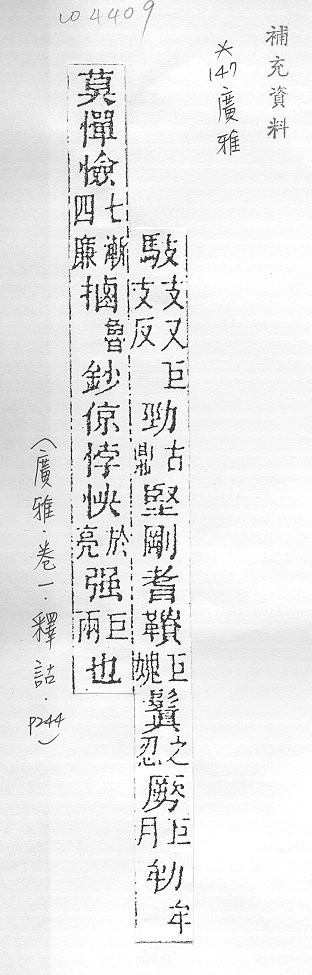 04409
補充資料
*147廣雅
馶支又巨支反勁古鼎堅剛耆鞼巨媿鬒之忍巨月劺牟
莫憚憸七漸四廉魯鈔倞悖怏於亮强巨兩也
(廣雅.卷一.釋詁.P244)